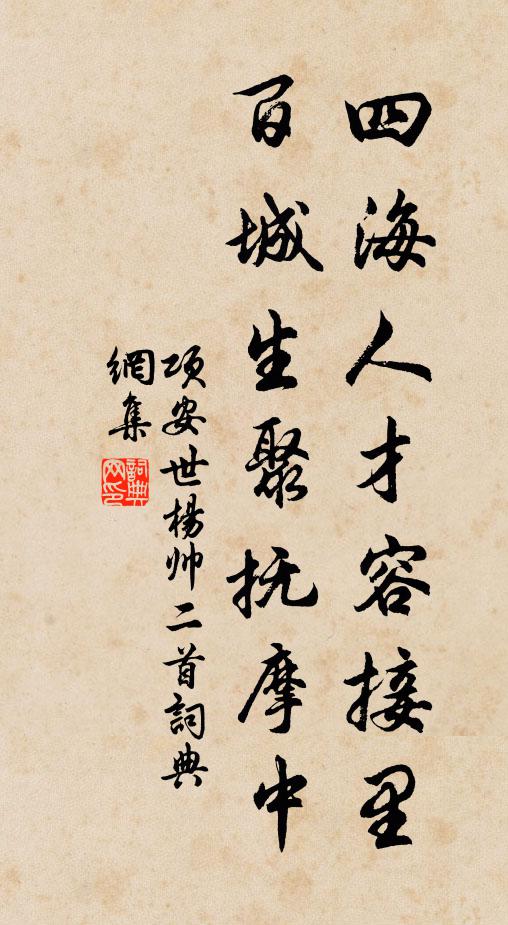 四海人才容接里
百城生聚抚摩中
项安世杨帅二首詞典
網集
詞典
网印